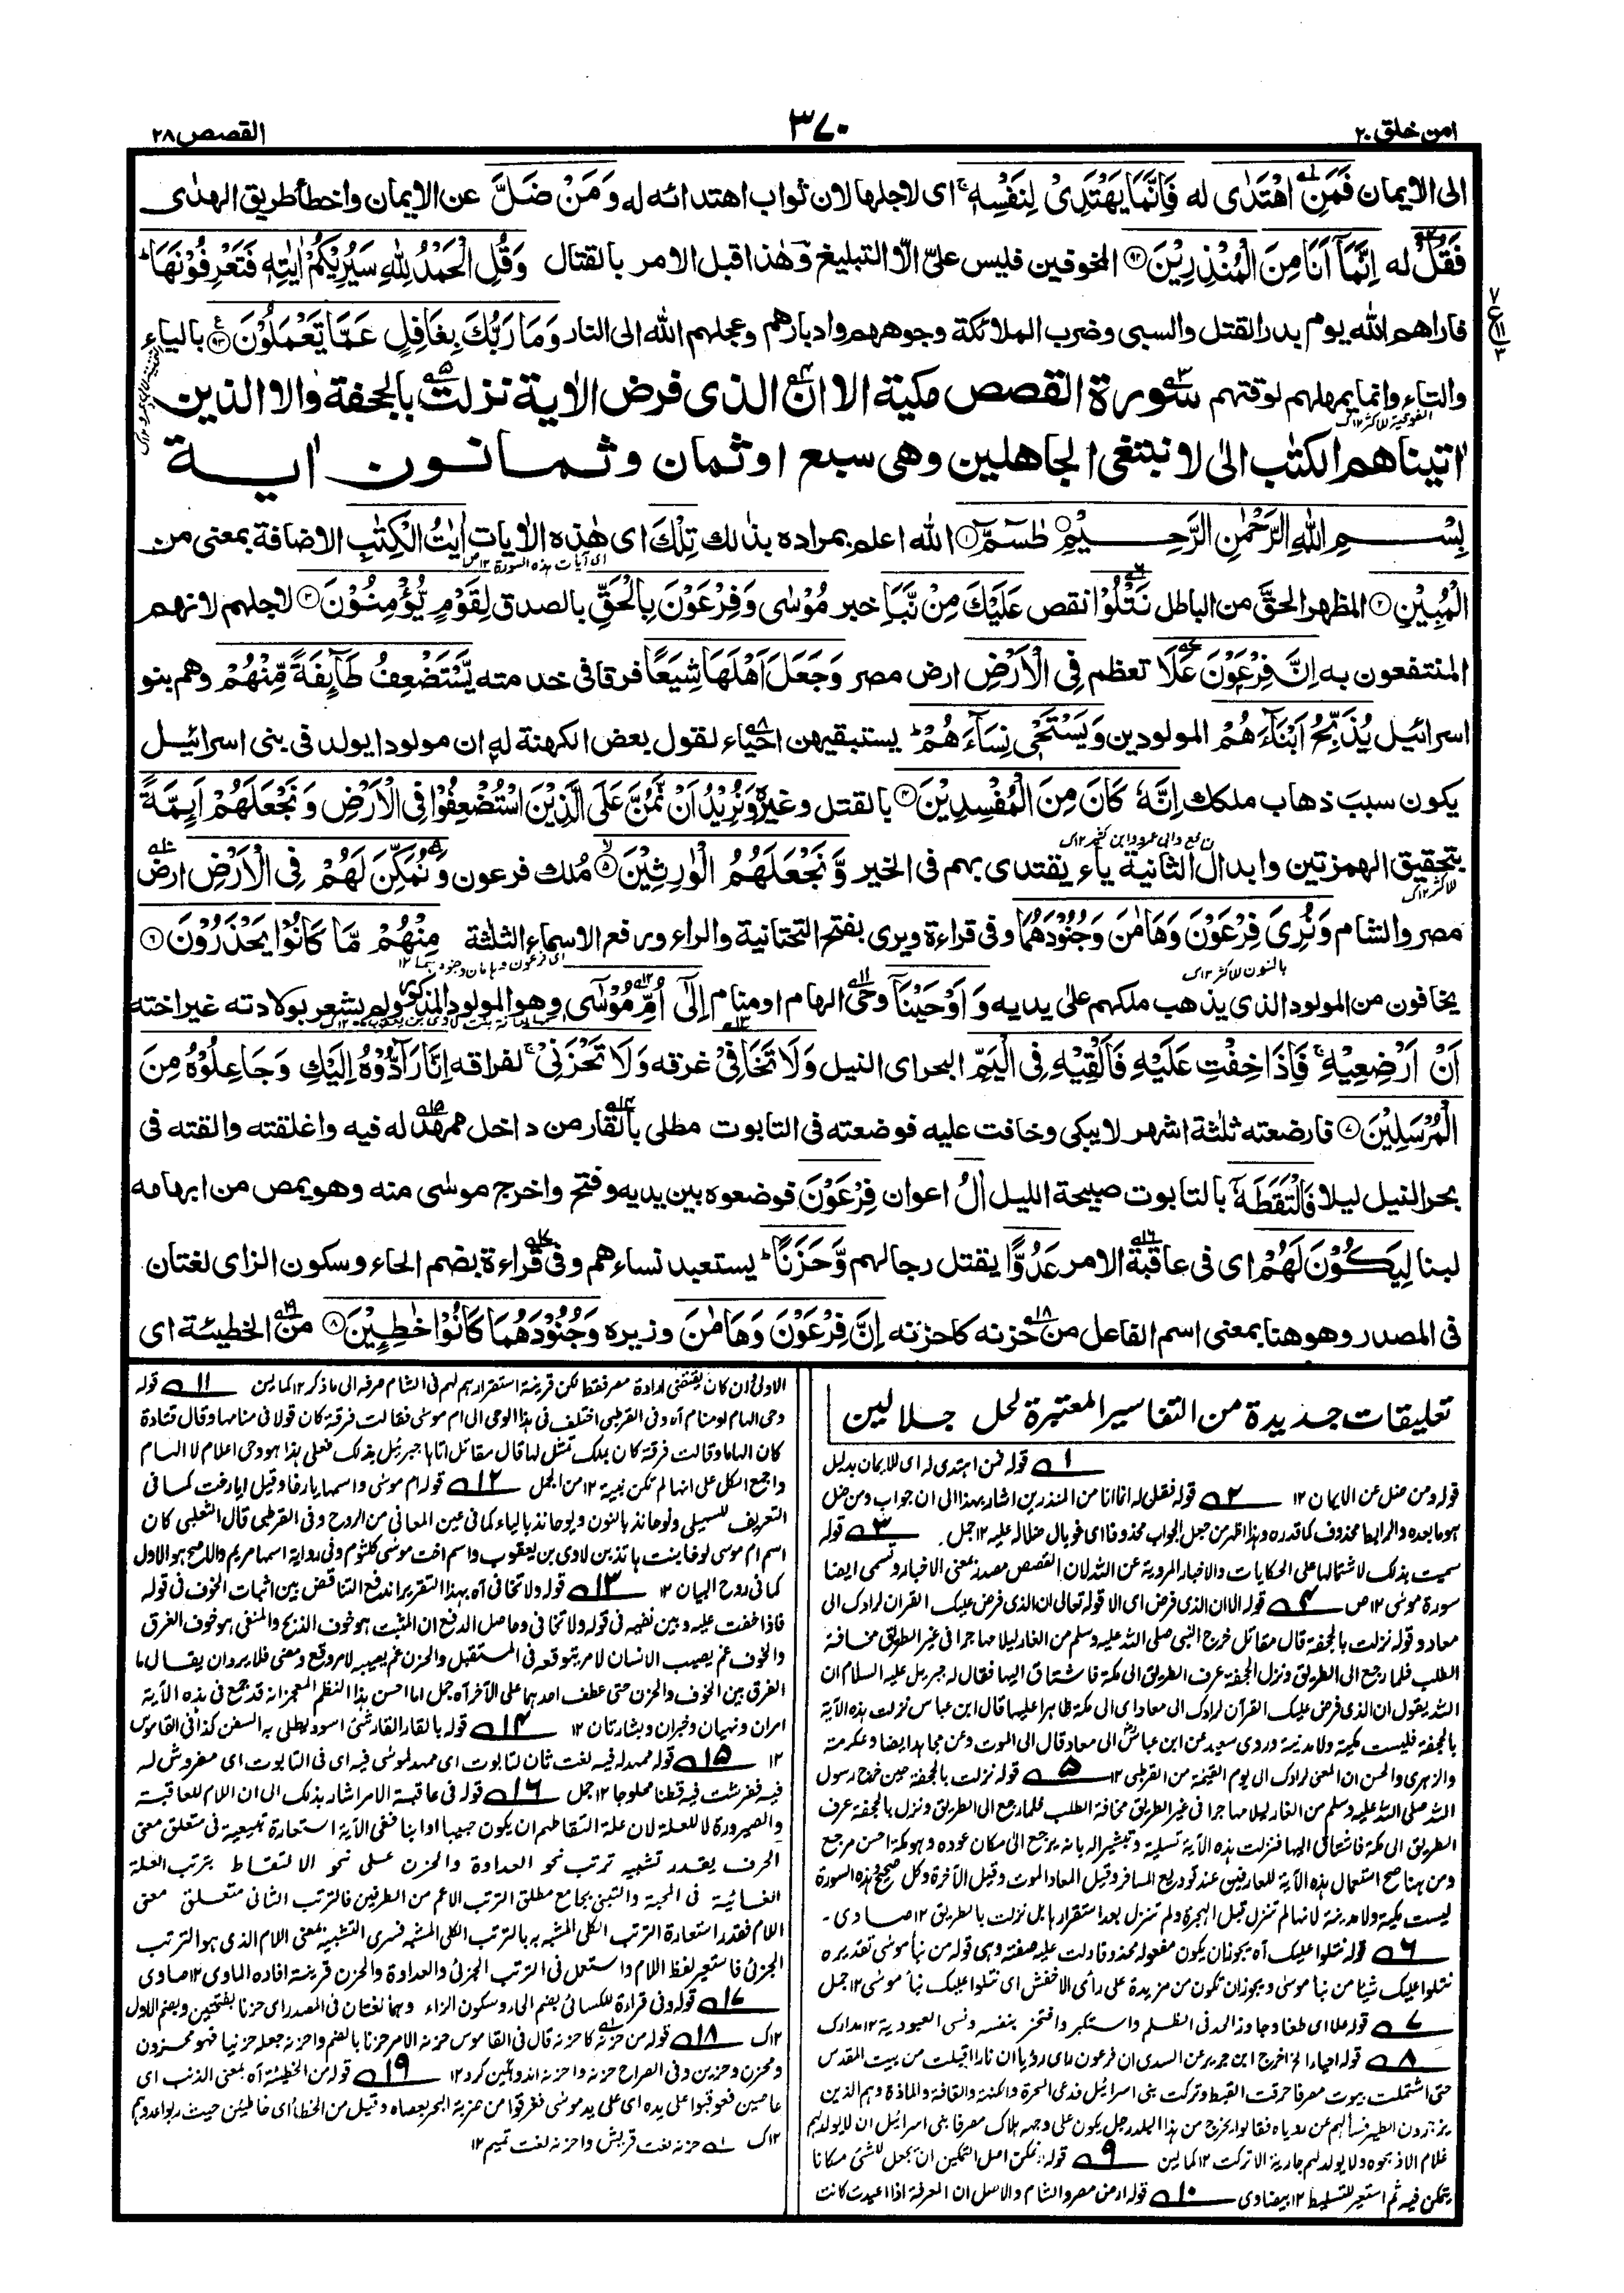 امن خلق ٢٠
٣٧٠
القصص ٢٨
الى الايمان فَمَنِ اهْتَدٰى له فَاِنَّمَا يَهْتَدِىْ لِنَفْسِهٖ ۚ اى لاجلها لان ثواب اهتدائه له وَمَنْ ضَلَّ عن الايمان واخطأ طريق الهدٰى
فَقُلْ له اِنَّمَآ اَنَا مِنَ الْمُنْذِرِيْنَ ﴿٩٢﴾ المخوفين فليس علىّ الّا التبليغ وهٰذا قبل الامر بالقتال وَقُلِ الْحَمْدُ لِلّٰهِ سَيُرِيْكُمْ اٰيٰتِهٖ فَتَعْرِفُوْنَهَا ؕ
فاراهم الله يوم بدر القتل والسبى وضرب الملائكة وجوههم وادبارهم وعجلهم الله الى النار وَمَا رَبُّكَ بِغَافِلٍ عَمَّا تَعْمَلُوْنَ ﴿٩٣﴾ بالياء
والتاء وانما يمهلهم لوقتهم سورة القصص مكية الا ان الذى فرض الاٰية نزلت بالجحفة والا الذين
اٰتيناهم الكتٰب الى لا نبتغى الجاهلين وهى سبع او ثمان وثمانون اٰية
بِسْمِ اللّٰهِ الرَّحْمٰنِ الرَّحِيْمِ طٰسٓمّٓ ﴿١﴾ الله اعلم بمراده بذٰلك تِلْكَ اى هٰذه الاٰيات اٰيٰتُ الْكِتٰبِ الاضافة بمعنى من
الْمُبِيْنِ ﴿٢﴾ المظهر الحقَّ من الباطل نَتْلُوْا نقص عَلَيْكَ مِنْ نَّبَاِ خبر مُوْسٰى وَفِرْعَوْنَ بِالْحَقِّ بالصدق لِقَوْمٍ يُّؤْمِنُوْنَ ﴿٣﴾ لاجلهم لانهم
المنتفعون به اِنَّ فِرْعَوْنَ عَلَا تعظم فِى الْاَرْضِ ارض مصر وَجَعَلَ اَهْلَهَا شِيَعًا فرقا فى خدمته يَّسْتَضْعِفُ طَآئِفَةً مِّنْهُمْ وهم بنو
اسرائيل يُذَبِّحُ اَبْنَآءَهُمْ المولودين وَيَسْتَحْىٖ نِسَآءَهُمْ ؕ يستبقيهن احياء لقول بعض الكهنة له ان مولودا يولد فى بنى اسرائيل
يكون سبب ذهاب ملكك اِنَّهٗ كَانَ مِنَ الْمُفْسِدِيْنَ ﴿٤﴾ بالقتل وغيره وَنُرِيْدُ اَنْ نَّمُنَّ عَلَى الَّذِيْنَ اسْتُضْعِفُوْا فِى الْاَرْضِ وَنَجْعَلَهُمْ اَئِمَّةً
بتحقيق الهمزتين وابدال الثانية ياء يقتدى بهم فى الخير وَّنَجْعَلَهُمُ الْوٰرِثِيْنَ ﴿٥﴾ مُلك فرعون وَنُمَكِّنَ لَهُمْ فِى الْاَرْضِ ارض
مصر والشام وَنُرِىَ فِرْعَوْنَ وَهَامٰنَ وَجُنُوْدَهُمَا وفى قراءة ويرى بفتح التحتانية والراء ورفع الاسماء الثلثة مِنْهُمْ مَّا كَانُوْا يَحْذَرُوْنَ ﴿٦﴾
يخافون من المولود الذى يذهب ملكهم على يديه وَاَوْحَيْنَآ وحى الهام او منام اِلٰٓى اُمِّ مُوْسٰٓى وهو المولود المذكور ولم يشعر بولادته غير اخته
اَنْ اَرْضِعِيْهِ ۚ فَاِذَا خِفْتِ عَلَيْهِ فَاَلْقِيْهِ فِى الْيَمِّ البحر اى النيل وَلَا تَخَافِىْ غرقه وَلَا تَحْزَنِىْ ۚ لفراقه اِنَّا رَآدُّوْهُ اِلَيْكِ وَجَاعِلُوْهُ مِنَ
الْمُرْسَلِيْنَ ﴿٧﴾ فارضعته ثلثة اشهر لا يبكى وخافت عليه فوضعته فى التابوت مطلى بالقار من داخل ممهد له فيه واغلقته والقته فى
بحر النيل ليلا فَالْتَقَطَهٗٓ بالتابوت صبيحة الليل اٰلُ اعوان فِرْعَوْنَ فوضعوه بين يديه وفتح واخرج موسٰى منه وهو يمص من ابهامه
لبنا لِيَكُوْنَ لَهُمْ اى فى عاقبة الامر عَدُوًّا يقتل رجالهم وَّحَزَنًا ؕ يستعبد نساءهم وفى قراءة بضم الحاء وسكون الزاى لغتان
فى المصدر وهو هنا بمعنى اسم الفاعل من حزنه كاحزنه اِنَّ فِرْعَوْنَ وَهَامٰنَ وزيره وَجُنُوْدَهُمَا كَانُوْا خٰطِـِٕيْنَ ﴿٨﴾ من الخطيئة اى
تعليقات جديدة من التفاسير المعتبرة لحل جلالين
١ قوله فمن اهتدى له اى للايمان بدليل
قوله ومن ضل عن الايمان ١٢ ٢ قوله فقل له انما انا من المنذرين اشار بهذا الى ان جواب ومن ضل
هو ما بعده والرابط محذوف كما قدره وهذا اظهر من جعل الجواب محذوفا اى فوبال ضلاله عليه ١٢ جمل ٣ قوله
سميت بذلك لاشتمالها على الحكايات والاخبار المروية عن الله لان القصص مصدر بمعنى الاخبار وتسمى ايضا
سورة موسى ١٢ ص ٤ قوله الا ان الذى فرض اى الا قوله تعالى ان الذى فرض عليك القرآن لرادك الى
معاد وقوله نزلت بالجحفة قال مقاتل خرج النبى صلى الله عليه وسلم من الغار ليلا مهاجرا فى غير الطريق مخافة
الطلب فلما رجع الى الطريق ونزل الجحفة عرف الطريق الى مكة فاشتاق اليها فقال له جبريل عليه السلام ان
الله يقول ان الذى فرض عليك القرآن لرادك الى معاد اى الى مكة ظاهرا عليها قال ابن عباس نزلت هذه الآية
بالجحفة فليست مكية ولا مدنية وروى سعيد عن ابن عباس الى معاد قال الى الموت وعن مجاهد ايضا وعكرمة
والزهرى والحسن ان المعنى لرادك الى يوم القيمة من القرطبى ١٢ ٥ قوله نزلت بالجحفة حين خرج رسول
الله صلى الله عليه وسلم من الغار ليلا مهاجرا فى غير الطريق مخافة الطلب فلما رجع الى الطريق ونزل بالجحفة عرف
الطريق الى مكة فاشتاق اليها فنزلت هذه الآية تسلية وتبشيرا له بانه يرجع الى مكان عوده وهو مكة احسن مرجع
ومن هنا صح استعمال هذه الآية للعارفين عند توديع المسافر وقيل المعاد الموت وقيل الآخرة وكل صحيح وهذه السورة
ليست مكية ولا مدنية لانها لم تنزل قبل الهجرة ولم تنزل بعد استقراره بل نزلت بالطريق ١٢ صاوى -
٦ قوله نتلوا عليك آه يجوز ان يكون مفعوله محذوفا دلت عليه صفته وهى قوله من نبأ موسى تقديره
نتلوا عليك شيئا من نبأ موسى ويجوز ان تكون من مزيدة على رأى الاخفش اى نتلوا عليك نبأ موسى ١٢ جمل
٧ قوله علا اى طغا وجاوز الحد فى الظلم واستكبر وافتخر بنفسه ونسى العبودية ١٢ مدارك
٨ قوله احياء الخ اخرج ابن جرير عن السدى ان فرعون رأى رؤيا ان نارا اقبلت من بيت المقدس
حتى اشتملت بيوت مصر فاحرقت القبط وتركت بنى اسرائيل فدعى السحرة والكهنة والقافة والماذة وهم الذين
يزجرون الطير فسألهم عن رؤياه فقالوا يخرج من هذا البلد رجل يكون على وجهه هلاك مصر فامر ببنى اسرائيل ان لا يولد لهم
غلام الا ذبحوه ولا يولد لهم جارية الا تركت ١٢ كمالين ٩ قوله نمكن اصل التمكين ان يجعل للشئ مكانا
يتمكن فيه ثم استعير للتسليط ١٢ بيضاوى ١٠ قوله ارض مصر والشام والاصل ان المعرفة اذا اعيدت كانت
الاولى وان كان يقتضى ارادة مصر فقط لكن قرينة استقرارهم لهم فى الشام صرفه الى ما ذكر ١٢ كمالين ١١ قوله
وحى الهام او منام آه وفى القرطبى اختلف فى هذا الوحى الى ام موسى فقالت فرقة كان قولا فى منامها وقال قتادة
كان الهاما وقالت فرقة كان بملك تمثل لها قال مقاتل اتاها جبريل بذلك فعلى هذا هو وحى اعلام لا الهام
واجمع الكل على انها لم تكن نبية ١٢ من الجمل ١٢ قوله ام موسى واسمها يارخا وقيل ايارخت كما فى
التعريف للسهيلى ونوحانذ بالنون ويوحانذ بالياء كما فى عين المعانى من الروح وفى القرطبى قال الثعلبى كان
اسم ام موسى لوخا بنت هاند بن لاوى بن يعقوب واسم اخت موسى كلثوم وفى رواية اسمها مريم والاصح هو الاول
كما فى روح البيان ١٢ ١٣ قوله ولا تخافى آه بهذا التقرير اندفع التناقض بين اثبات الخوف فى قوله
فاذا خفت عليه وبين نفيه فى قوله ولا تخافى وحاصل الدفع ان المثبت هو خوف الذبح والمنفى هو خوف الغرق
والخوف غم يصيب الانسان لامر يتوقعه فى المستقبل والحزن غم يصيبه لامر وقع ومضى فلا يرد ان يقال ما
الفرق بين الخوف والحزن حتى عطف احدهما على الآخر آه جمل اما احسن هذا النظم المعجز انه قد جمع فى هذه الآية
امران ونهيان وخبران وبشارتان ١٢ ١٤ قوله بالقار القار شئ اسود يطلى به السفن كذا فى القاموس
١٢ ١٥ قوله ممهد له فيه نعت ثان لتابوت اى ممهد لموسى فيه اى فى التابوت اى مفروش له
فيه ففرشت فيه قطنا محلوجا ١٢ جمل ١٦ قوله فى عاقبة الامر اشار بذلك الى ان اللام للعاقبة
والصيرورة لا للعلة لان علة التقاطهم ان يكون حبيبا او ابنا ففى الآية استعارة تبعية فى متعلق معنى
الحرف يقدر تشبيه ترتب نحو العداوة والحزن على نحو الالتقاط بترتب العلة
الغائية فى المحبة والتبنى بجامع مطلق الترتب الاعم من الطرفين فالترتب الثانى متعلق معنى
اللام فقدر استعارة الترتب الكلى المشبه به بالترتب الكلى المشبه فسرى التشبيه لمعنى اللام الذى هو الترتب
الجزئى فاستعير لفظ اللام واستعمل فى الترتب الجزئى والعداوة والحزن قرينة افاده الملوى ١٢ صاوى
١٧ قوله وفى قراءة للكسائى بضم الحاء وسكون الزاء وهما لغتان فى المصدر اى حزنا بفتحتين وبضم الاول
١٢ ك ١٨ قوله من حزنه كاحزنه قال فى القاموس حزنه الامر حزنا بالضم واحزنه جعله حزينا فهو محزون
ومحزن وحزين وفى الصراح حزنه واحزنه اندوهگين كرد ١٢ ١٩ قوله من الخطيئة آه بمعنى الذنب اى
عاصين فعوقبوا على يده اى على يد موسى فغرقوا من ضربة البحر بعصاه وقيل من الخطأ اى خاطئين حيث ربوا عدوهم
١٢ ك حزنه لغت قريش واحزنه لغت تميم ١٢